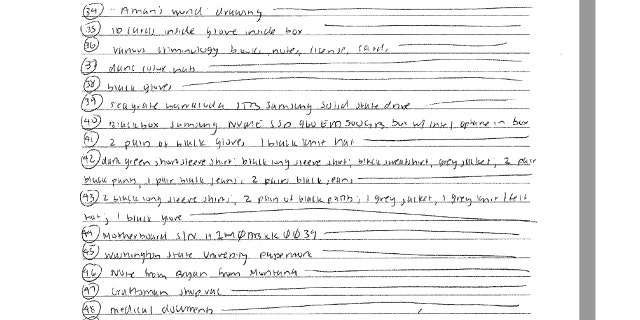 34 "A man's mind" drawing
35 ID cards inside glove inside box
36 various criminology books, notes, license, card,
37 dark blue hats
38 black gloves
39 Seagrate barracuda 1TB Samsung solid state drive
40 Black box Samsung NVME SSD 960 EM 500GB box w/ intel optane in box
41 2 pair of black gloves, 1 black knit hat
42 dark green short sleeve shirt, black long sleeve shirt, black sweatshirt, grey jacket, 2 pair
black pants, 1 pair black jeans, 2 pairs black jeans
43 2 black long sleeve shirts, 2 pair of black pants, 1 grey jacket, 1 grey knit / felt
hat, 1 black glove
44 Motherboard S/N
45 Washington State University paperwork
46 Note from Bryan from Montana
47 Craftsman shop vac
48 medical documents